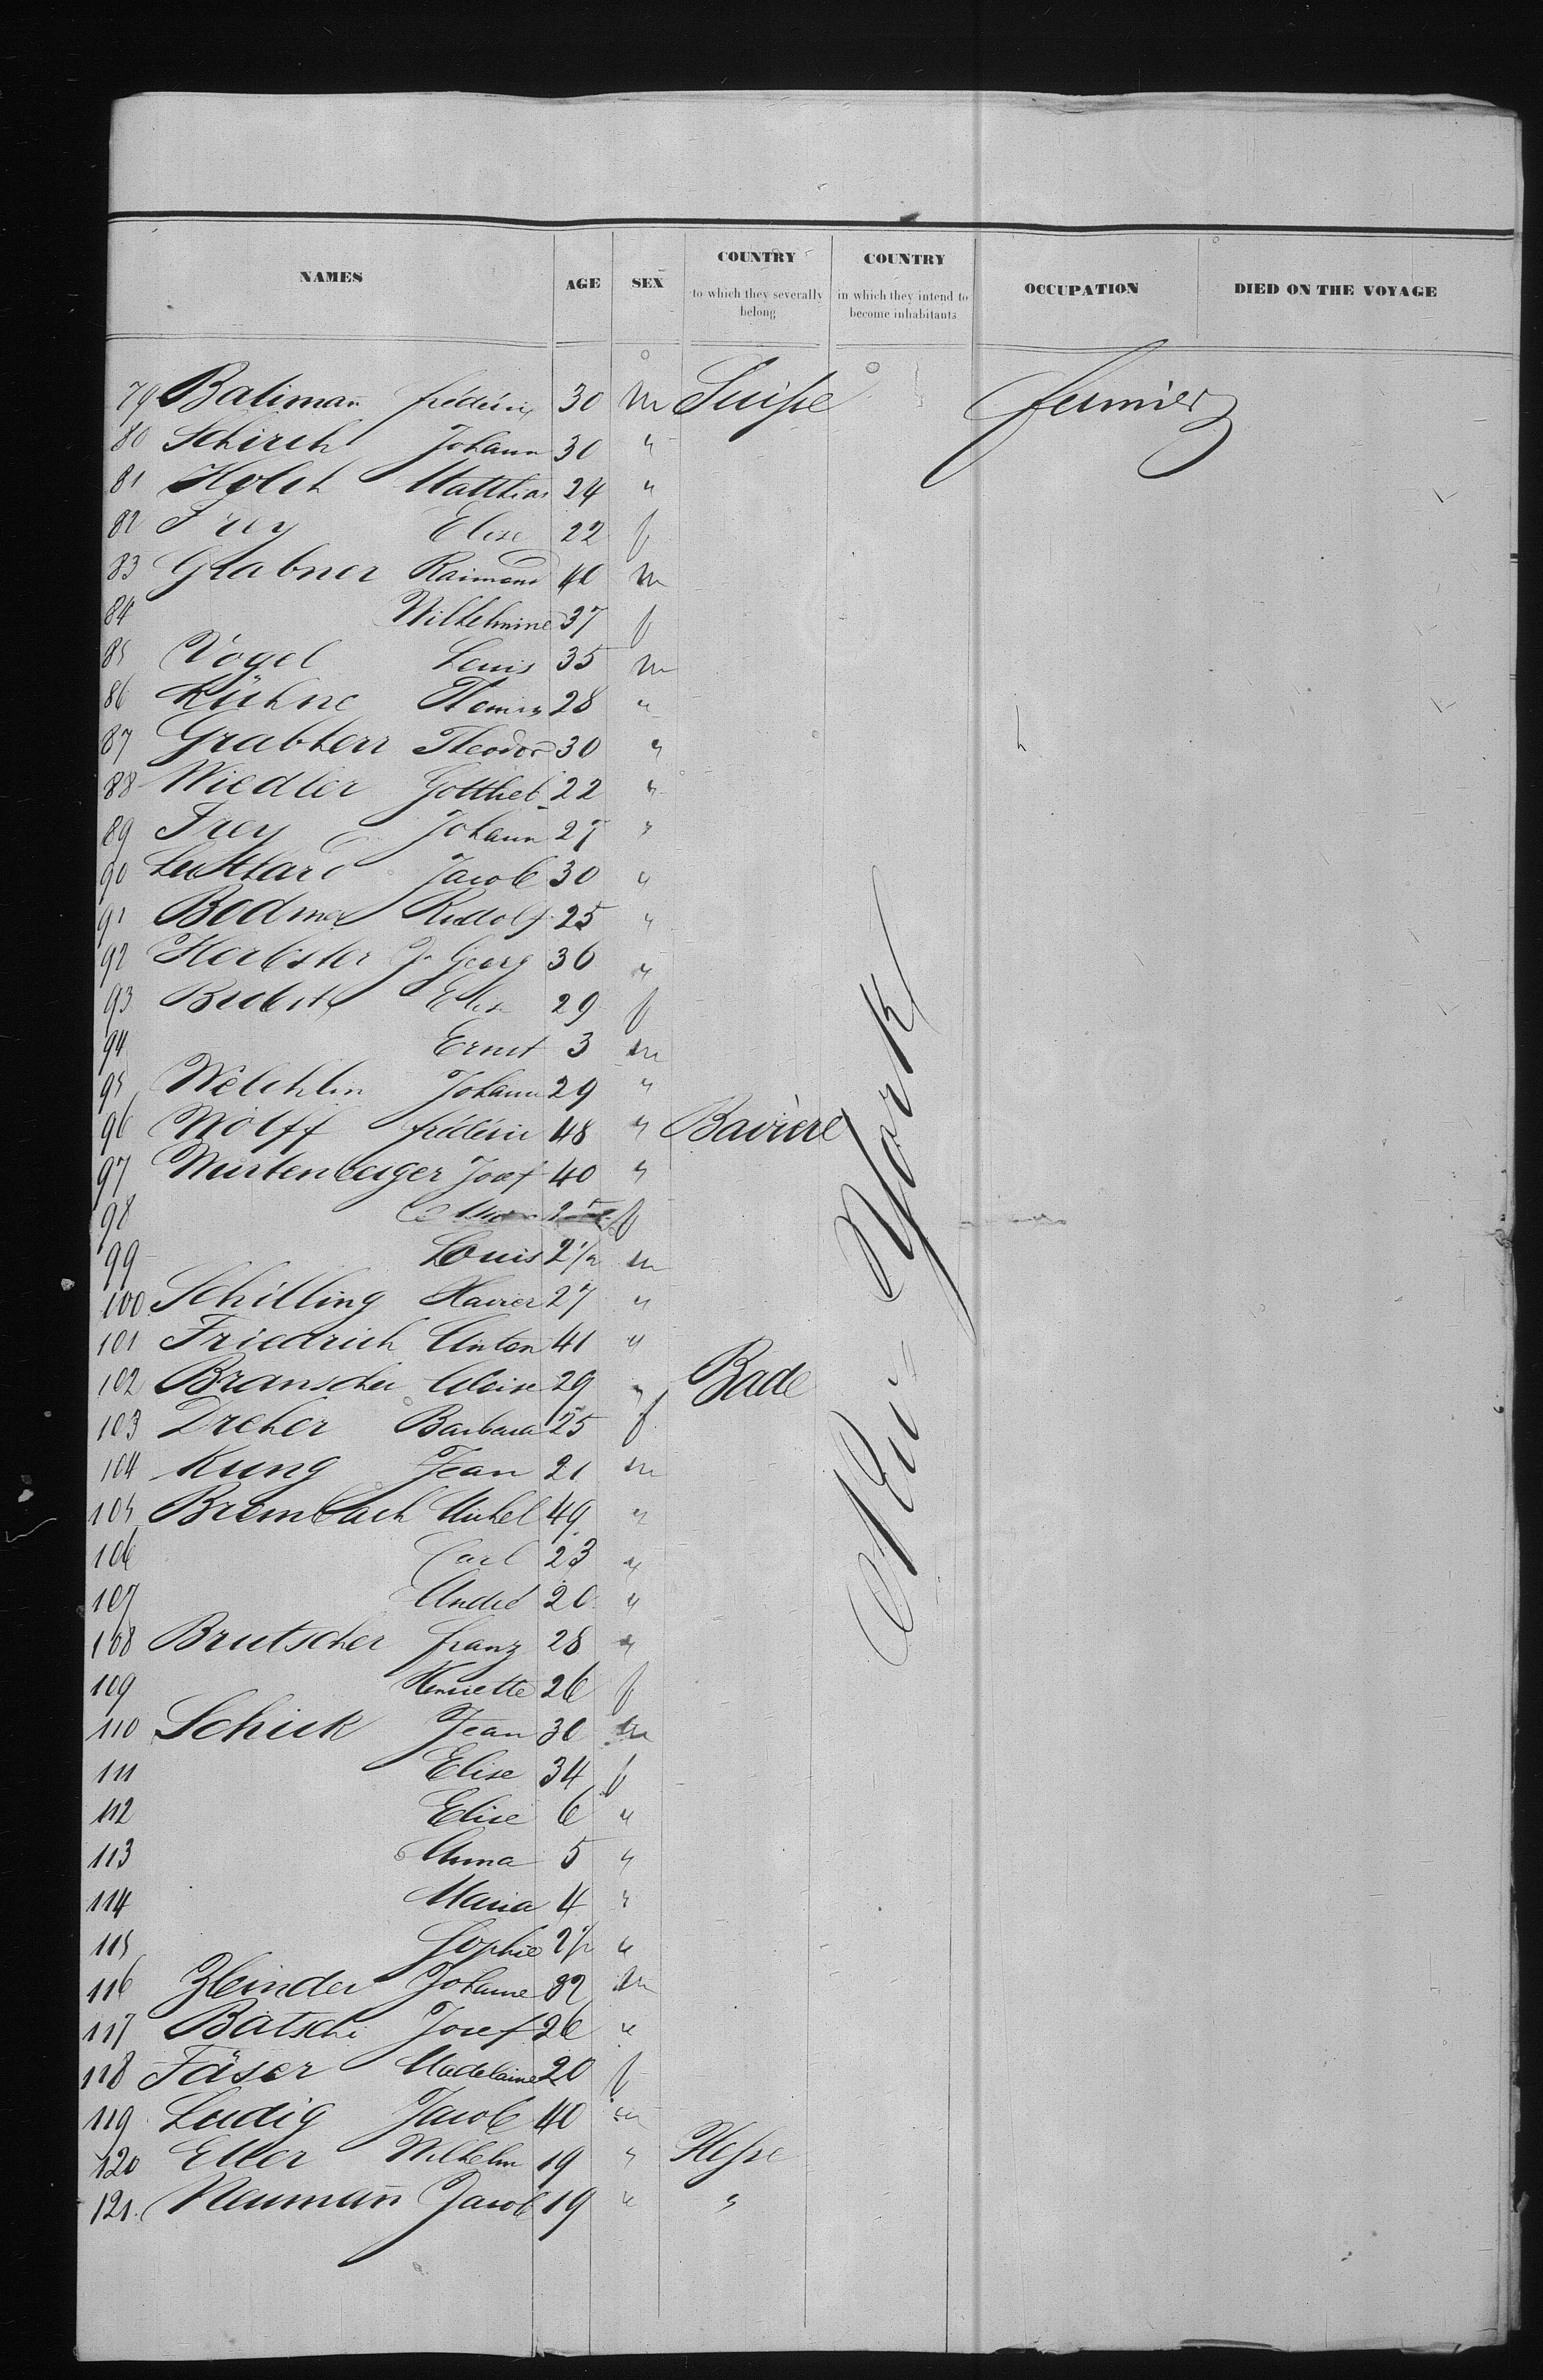 NAMES AGE SEX COUNTRY to which they severally belong COUNTRY in which they intend to become inhabitants OCCUPATION DIED ON THE VOYAGE
79 Baliman frédéric 30 m Suisse fermier
80 Schirch Johann 30 "
81 Holch Matthias 24 "
82 Frey Elise 22 f
83 Grabner Raimond 40 m
84 Wilhelmine 37 f
85 Vogel Louis 35 m
86 Kühne 28 "
87 Grabherr Theodor 30 "
88 Wiedler Gottlieb 22 "
89 Frey Johann 27 "
90 Jacob 30 "
91 Bodmer Rudolf 25 "
92 Herbster J. Georg 36 "
93 Elise 29 f
94 Ernst 3 m
95 Welchlin Johann 29 "
96 Wolff frédéric 48 " Bavière
97 Wurtenberger Josef 40 "
98 f
99 Louis 2 1/2 m
100 Schilling Xavier 27 "
101 Friedrich Anton 41 "
102 Branscher Aloise 29 " Bade
103 Dreher Barbara 25 f
104 Kung Jean 21 m
105 Brombach Michel 49 "
106 Carl 23 "
107 André 20 "
108 Brutscher franz 28 "
109 Henriette 26 f
110 Schick Jean 30 m
111 Elise 34 f
112 Elise 6 "
113 Anna 5 "
114 Maria 4 "
115 Sophie 2 1/2 "
116 Johanne 32 m
117 Bätschi Josef 26 "
118 Fäser Madelaine 20 f
119 Ludig Jacob 40 m
120 Eller Wilhelm 19 " Hesse
121. Neumann Jacob 19 " "
New York